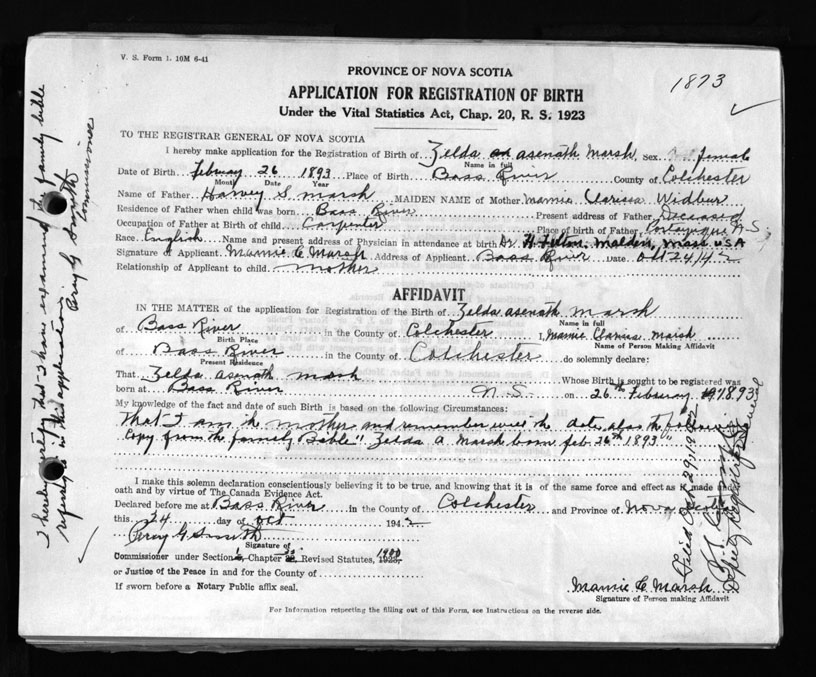 V. S. Form 1. 10M 6-41
PROVINCE OF NOVA SCOTIA
1873
APPLICATION FOR REGISTRATION OF BIRTH
Under the Vital Statistics Act, Chap. 20, R. S. 1923
TO THE REGISTRAR GENERAL OF NOVA SCOTIA
I hereby make application for the Registration of Birth of Zelda asenath Marsh Sex female
Name in full
Date of Birth February 26 1893 Place of Birth Bass River County of Colchester
Month Date Year
Name of Father Harvey S marsh MAIDEN NAME of Mother Mamie Clarissa
Residence of Father when child was born Bass River Present address of Father Deceased
Occupation of Father at Birth of child Carpenter Place of birth of Father N.S.
Race English Name and present address of Physician in attendance at birth Dr. Malden, Mass USA
Signature of Applicant Mamie C Marsh Address of Applicant Bass River Date Oct 24/42
Relationship of Applicant to child mother
AFFIDAVIT
IN THE MATTER of the application for Registration of the Birth of Zelda asenath marsh
Name in full
of Bass River in the County of Colchester I, Mamie Marsh
Birth Place Name of Person Making Affidavit
of Bass River in the County of Colchester do solemnly declare:
Present Residence
That Zelda asenath marsh Whose Birth is sought to be registered was
born at Bass River N.S. on 26th February 1893
My knowledge of the fact and date of such Birth is based on the following Circumstances:
That I am the mother and remember well the date, also the following
Copy from the family Bible " Zelda A. Marsh born Feb. 26th 1893 "
I make this solemn declaration conscientiously believing it to be true, and knowing that it is of the same force and effect as if made under
oath and by virtue of The Canada Evidence Act.
Declared before me at Bass River in the County of Colchester and Province of Nova Scotia
this 24 day of Oct 1942
Percy G Smith
Signature of
Commissioner under Section Chapter Revised Statutes, 1923, 1900
or Justice of the Peace in and for the County of
If sworn before a Notary Public affix seal.
Mamie C Marsh
Signature of Person making Affidavit
For Information respecting the filling out of this Form, see Instructions on the reverse side.
I hereby certify that I have examined the family bible
referred to in this application.
Percy G Smith
Commissioner
Filed Oct 29, 1942
Deputy Registrar General